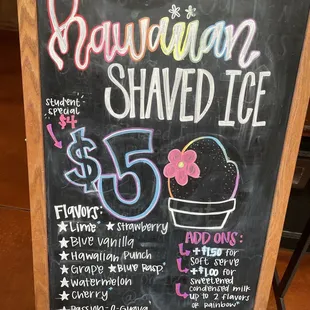 Hawaiian
SHAVED ICE
student
special
$4
$5
Flavors:
★ Lime* ★ Strawberry
★ Blue Vanilla
★ Hawaiian Punch
★ Grape ★ Blue Rasp*
★ Watermelon
★ Cherry*
★ Passion-O-Guava
ADD ONS:
+$1.50 for
soft serve
+$1.00 for
sweetened
condensed milk
up to 2 flavors
or rainbow*